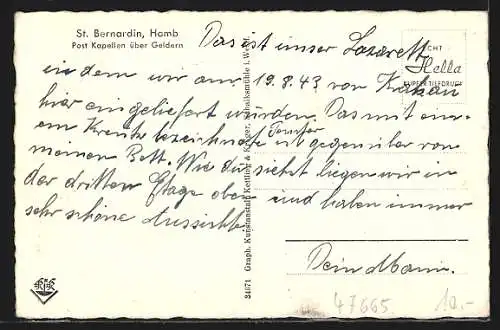 St. Bernardin, Hamb
Post Kapellen über Geldern
ECHT
Hella
KUPFERTIEFDRUCK
Das ist unser Lazarett
in dem wir am 19.8.43 von Krakau
hier eingeliefert wurden. Das mit ein-
em Kreuz bezeichnete Fenster ist gegenüber von
meinem Bett. Wie du siehst liegen wir in
der dritten Etage oben und haben immer
sehr schöne Aussicht.
Dein Mann.
34671 Graph. Kunstanstalt Kettling & Krüger, Schalksmühle i. Westf.
K&K
47665
10.-